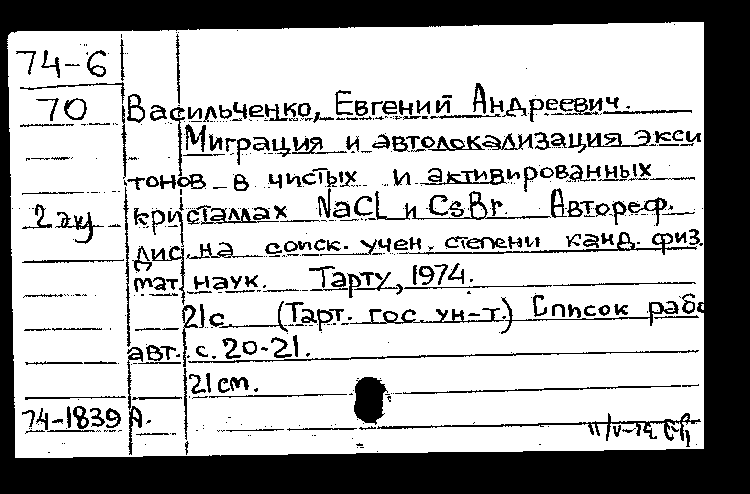 74-6
70 Васильченко, Евгений Андреевич.
Миграция и автолокализация экси
тонов в чистых и активированных
2 экз кристаллах NaCl и CsBr. Автореф.
дис. на соиск. учен. степени канд. физ.
мат. наук. Тарту, 1974.
21 с. (Тарт. гос. ун-т.) Список раб
авт. с. 20-21.
21 см.
74-1839 А.